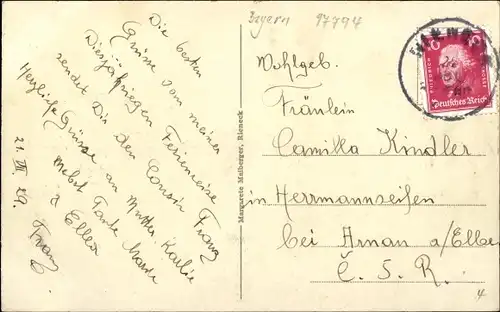 Bayern 97794
Die besten
Grüsse von meiner
Diesjährigen Ferienreise
sendet Dir dein Cousin Franz
Herzliche Grüsse an Mutter Karlie
nebst Tante Marie
& Ella
Franz
21. VII. 29.
Margarete Malberger, Rieneck
Wohlgeb.
Fräulein
Camilla Kindler
in Herrmannseifen
bei Arnau a/Elbe
Č. S. R.
4
Deutsches Reich